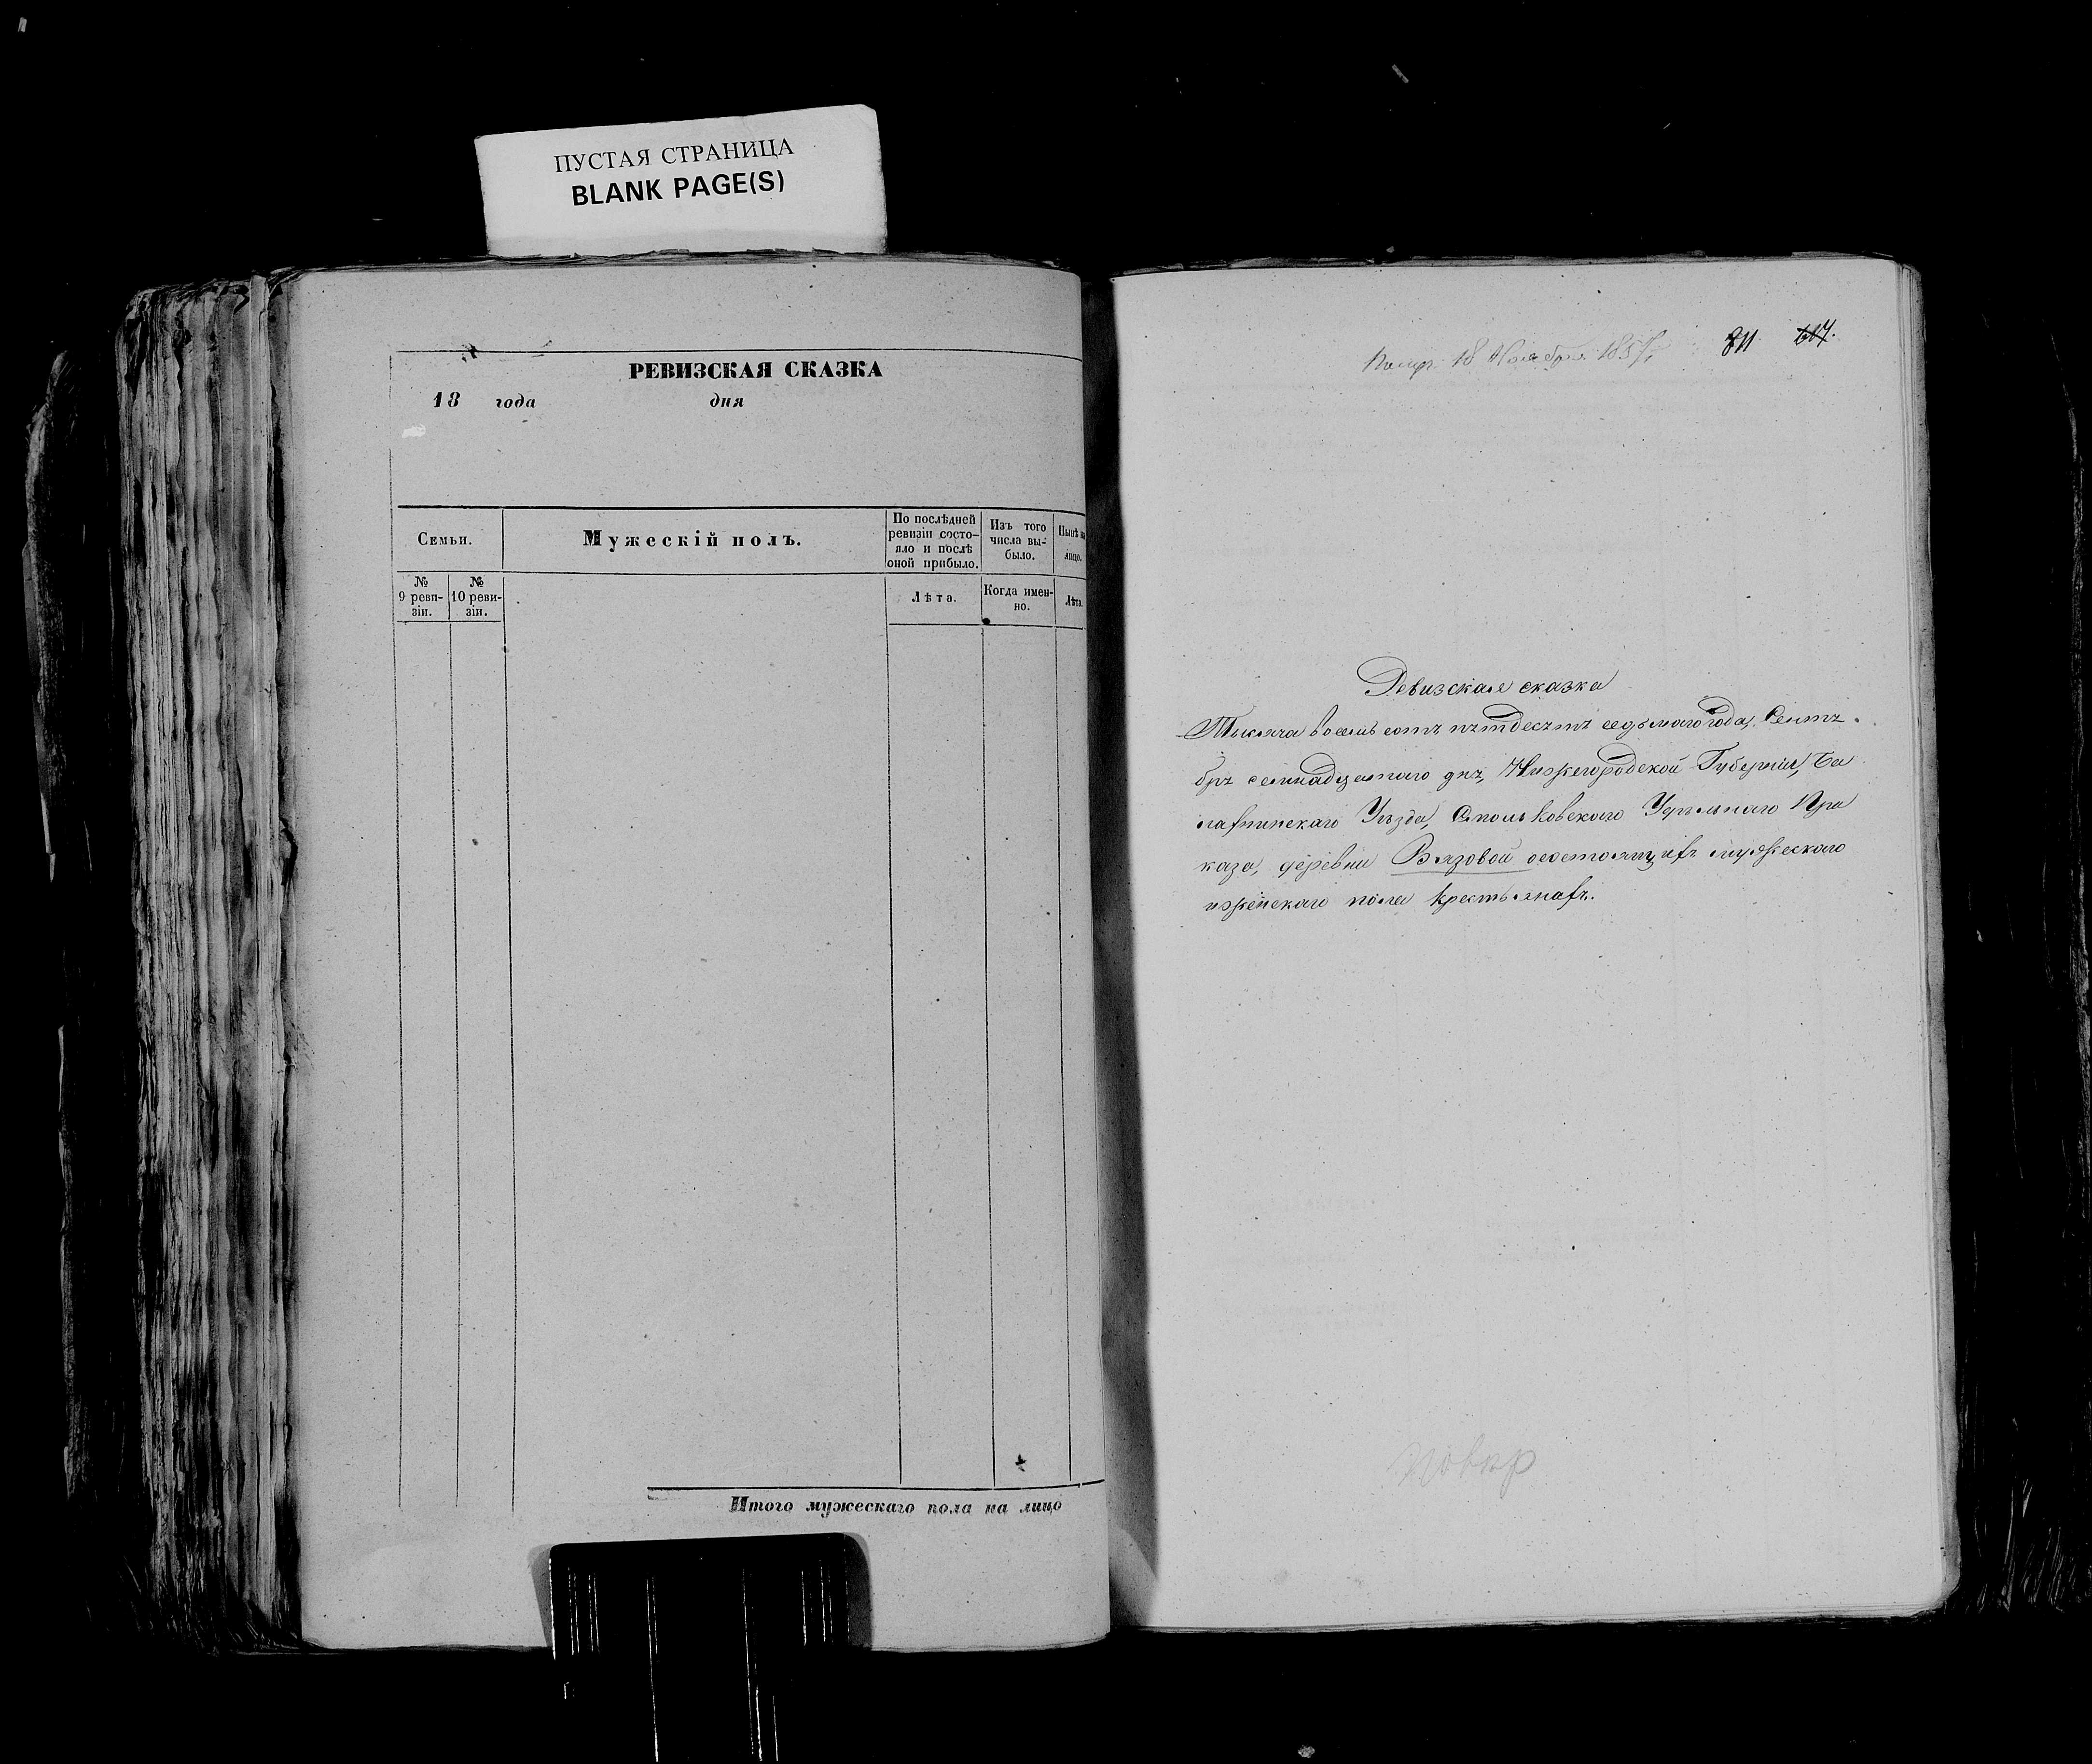 ПУСТАЯ СТРАНИЦА
BLANK PAGE(S)
РЕВИЗСКАЯ СКАЗКА
18 года дня
Семьи.
Мужескій полъ.
По послѣдней
ревизіи состо-
яло и послѣ
оной прибыло.
Изъ того
числа вы-
было.
Нынѣ на
лицо.
№
9 реви-
зіи.
№
10 реви-
зіи.
Лѣта.
Когда имен-
но.
Лѣта.
Итого мужескаго пола на лицо
18 Ноября 1857 811 617.
Ревизская сказка
Тысяча восемь сотъ пятдесятъ седьмаго года, Сентя-
бря семнадцатаго дня, Нижегородской Губерніи, Ба
лахнинскаго Уѣзда, Удѣльнаго При
каза, деревни Вязовой состоящихъ мужескаго
и женскаго пола крестьянахъ.